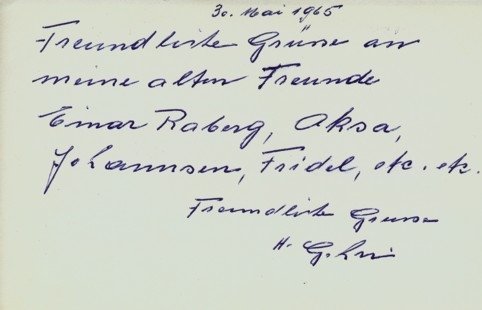 30. Mai 1965
Freundliche Grüsse an
meine alten Freunde
Einar Raberg, Aksa,
Johannsen, Fridel, etc. etc.
Freundliche Grüsse
H.